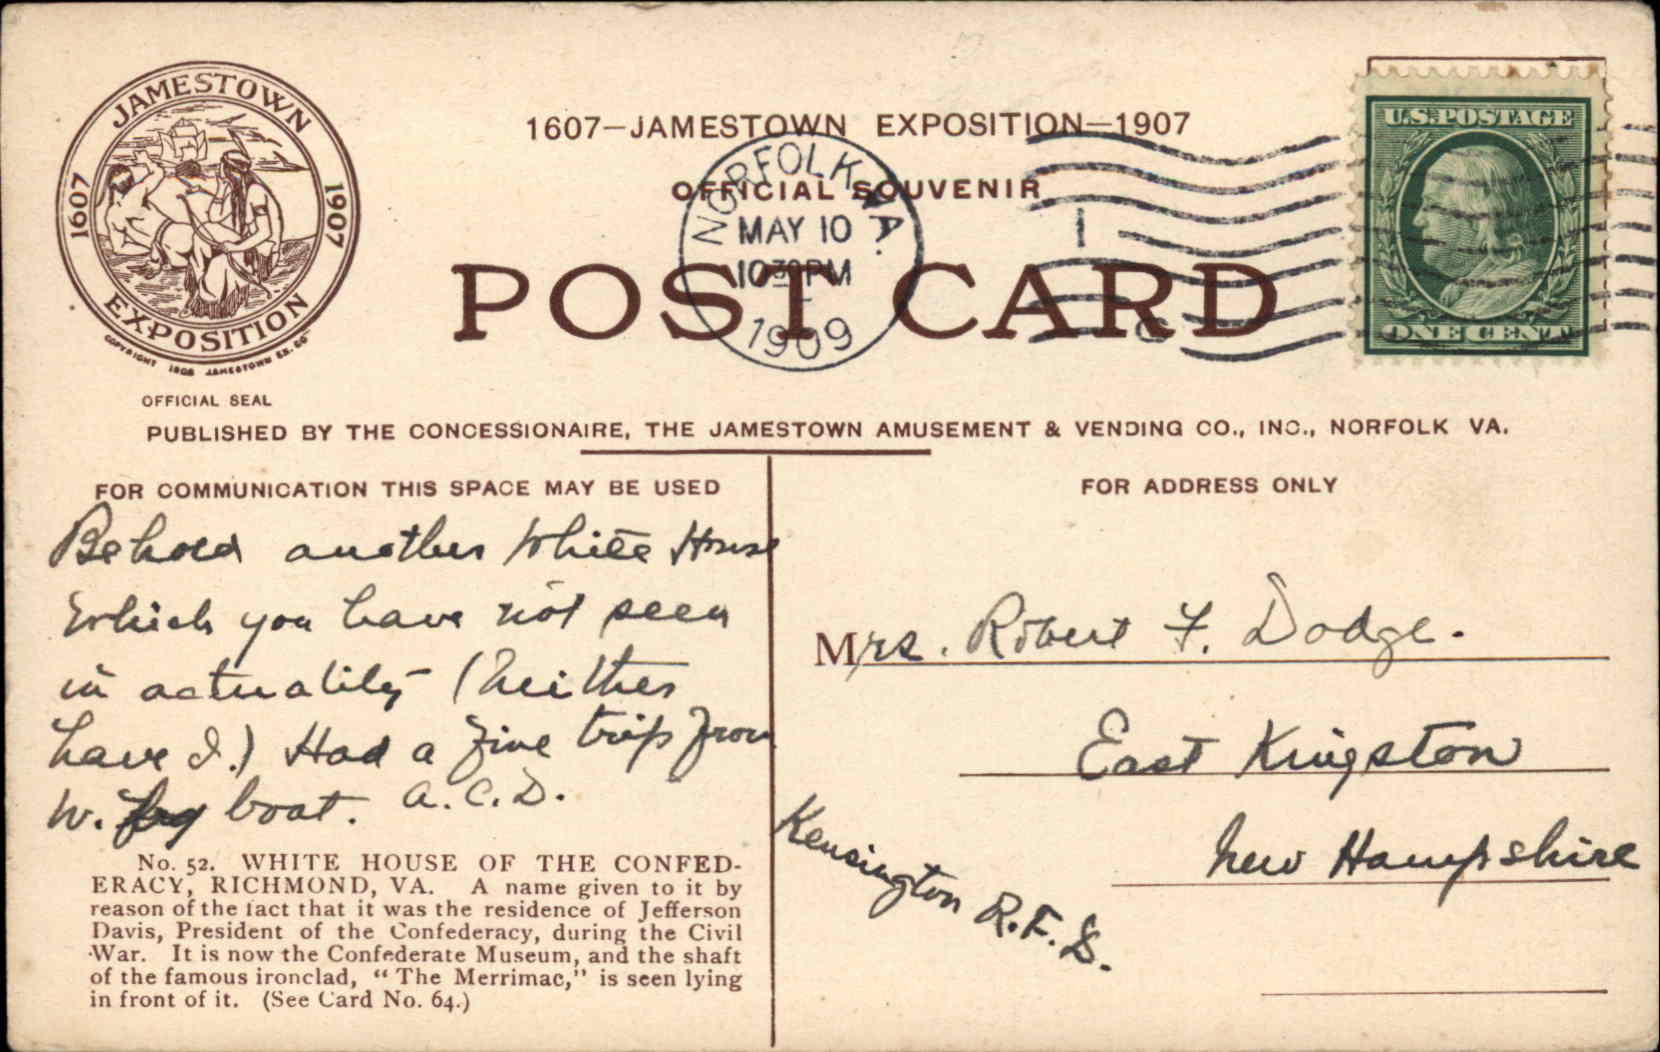 JAMESTOWN
1607
1907
EXPOSITION
COPYRIGHT 1906 JAMESTOWN EX. CO.
OFFICIAL SEAL
1607—JAMESTOWN EXPOSITION—1907
OFFICIAL SOUVENIR
POST CARD
NORFOLK, VA.
MAY 10
10 30 PM
1909
1
U.S. POSTAGE
ONE CENT
PUBLISHED BY THE CONCESSIONAIRE, THE JAMESTOWN AMUSEMENT & VENDING CO., INC., NORFOLK VA.
FOR COMMUNICATION THIS SPACE MAY BE USED
Behold another White House
which you have not seen
in actuality (Neither
have I.) Had a fine trip from
W. boat. A.C.D.
No. 52. WHITE HOUSE OF THE CONFED-
ERACY, RICHMOND, VA. A name given to it by
reason of the fact that it was the residence of Jefferson
Davis, President of the Confederacy, during the Civil
War. It is now the Confederate Museum, and the shaft
of the famous ironclad, "The Merrimac," is seen lying
in front of it. (See Card No. 64.)
FOR ADDRESS ONLY
Mrs. Robert F. Dodge.
East Kingston
New Hampshire
Kensington R.F.D.